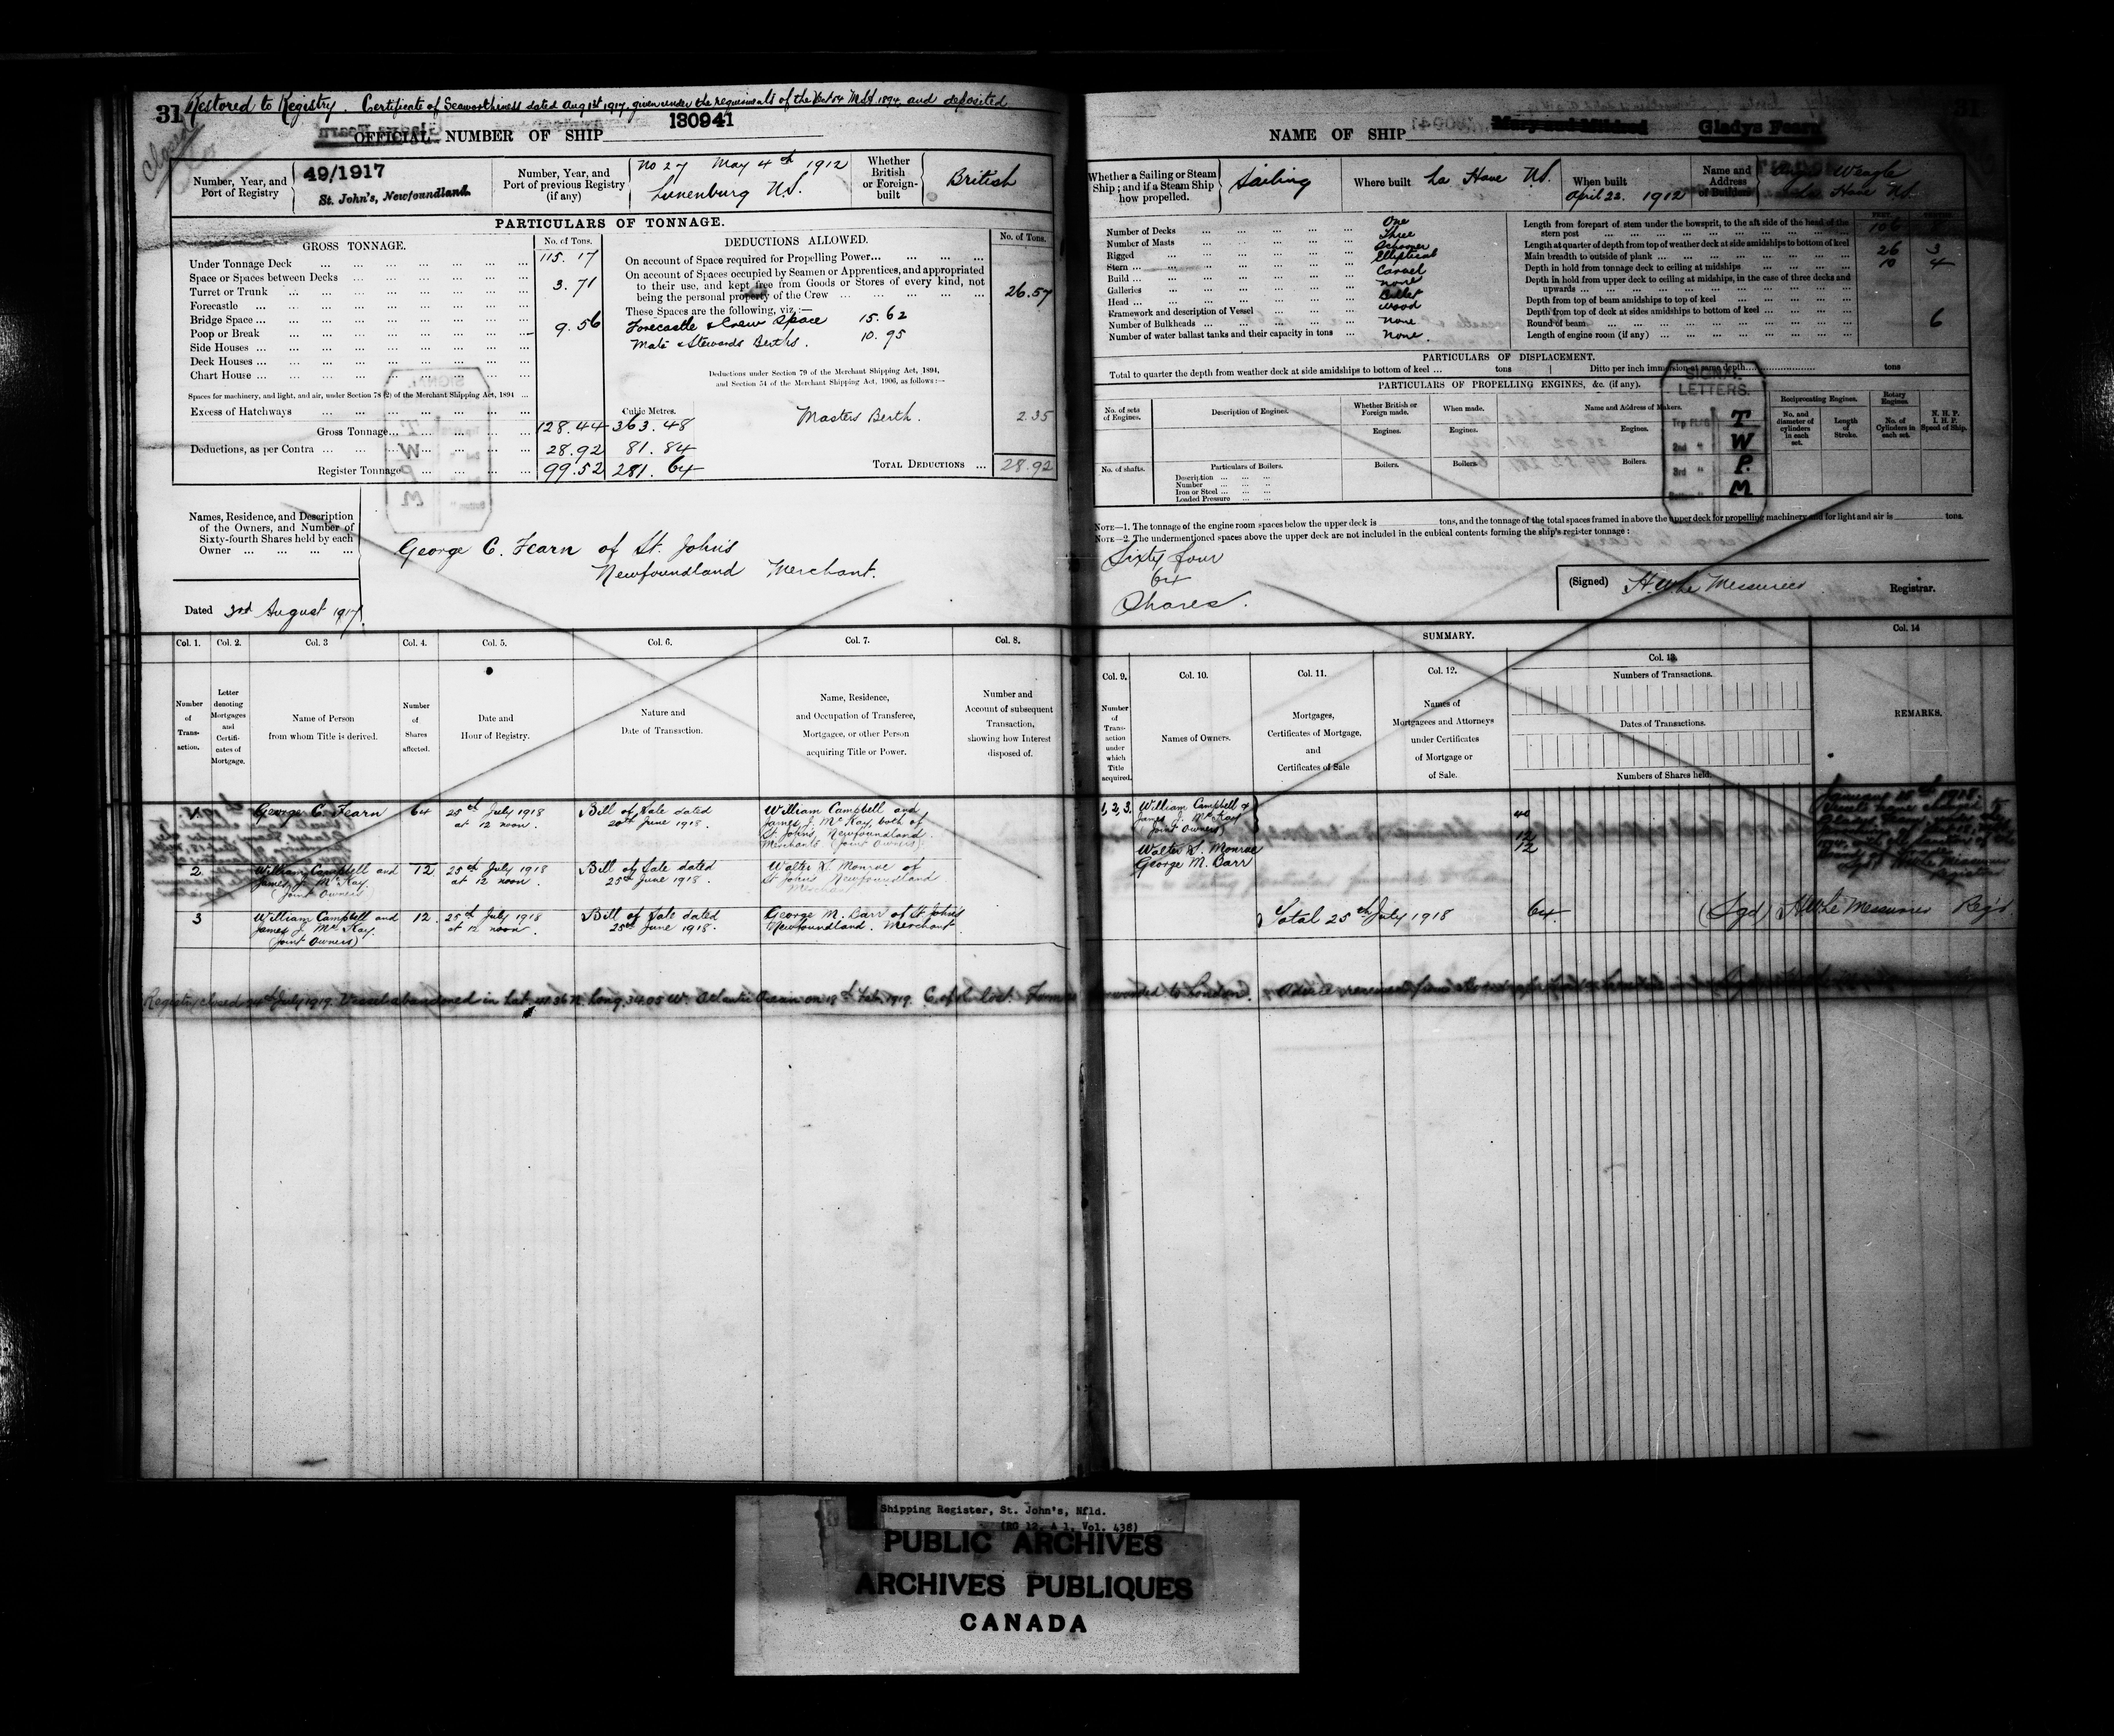 31 Restored to Registry. Certificate of Seaworthiness dated Aug 1st 1917, given under the requirements of the Sect 54 M.S.A. 1894 and deposited
Closed
OFFICIAL NUMBER OF SHIP 130941
Number, Year, and Port of Registry
49/1917
St. John's, Newfoundland.
Number, Year, and Port of previous Registry (if any)
No 27 May 4th 1912
Lunenburg N.S.
Whether British or Foreign-built
British
PARTICULARS OF TONNAGE.
GROSS TONNAGE.
No. of Tons.
Under Tonnage Deck 115.17
Space or Spaces between Decks
Turret or Trunk 3.71
Forecastle
Bridge Space
Poop or Break 9.56
Side Houses
Deck Houses
Chart House
Spaces for machinery, and light, and air, under Section 78 (2) of the Merchant Shipping Act, 1894
Excess of Hatchways
Cubic Metres.
Gross Tonnage 128.44 363.48
Deductions, as per Contra 28.92 81.84
Register Tonnage 99.52 281.64
DEDUCTIONS ALLOWED.
No. of Tons.
On account of Space required for Propelling Power
On account of Spaces occupied by Seamen or Apprentices, and appropriated
to their use, and kept free from Goods or Stores of every kind, not
being the personal property of the Crew 26.57
These Spaces are the following, viz.:—
Forecastle & Crew Space 15.62
Mate & Stewards Berths. 10.95
Deductions under Section 79 of the Merchant Shipping Act, 1894,
and Section 54 of the Merchant Shipping Act, 1906, as follows:—
Masters Berth. 2.35
TOTAL DEDUCTIONS 28.92
Names, Residence, and Description
of the Owners, and Number of
Sixty-fourth Shares held by each
Owner
George C. Fearn of St. John's
Newfoundland Merchant.
Dated 3rd August 1917.
Col. 1. Col. 2. Col. 3 Col. 4. Col. 5. Col. 6. Col. 7. Col. 8.
Number of Transaction.
Letter denoting Mortgages and Certificates of Mortgage.
Name of Person from whom Title is derived.
Number of Shares affected.
Date and Hour of Registry.
Nature and Date of Transaction.
Name, Residence, and Occupation of Transferee, Mortgagee, or other Person acquiring Title or Power.
Number and Account of subsequent Transaction, showing how Interest disposed of.
1. George C. Fearn 64 25th July 1918 at 12 noon. Bill of Sale dated 20th June 1918. William Campbell and James J. McKay, both of St John's, Newfoundland Merchants (Joint Owners)
2. William Campbell and James J. McKay. (Joint Owners) 12 25th July 1918 at 12 noon. Bill of Sale dated 25th June 1918. Walter S. Monroe of St John's Newfoundland Merchant
3 William Campbell and James J. McKay. (Joint Owners) 12. 25th July 1918 at 12 noon. Bill of Sale dated 25th June 1918. George M. Barr of St John's Newfoundland. Merchant
Registry closed 24th July 1919. Vessel abandoned in Lat. 41.36 N. Long. 34.05 W. Atlantic Ocean on 18th Feb. 1919. C. of R. lost.
NAME OF SHIP Mary and Mildred Gladys Fearn
31
Whether a Sailing or Steam Ship; and if a Steam Ship how propelled.
Sailing
Where built La Have N.S.
When built April 22. 1912
Name and Address of Builders
Weagle
La Have N.S.
Number of Decks One
Number of Masts Three
Rigged Schooner
Stern Elliptical
Build Carvel
Galleries none
Head Billet
Framework and description of Vessel wood
Number of Bulkheads none
Number of water ballast tanks and their capacity in tons None.
Length from forepart of stem under the bowsprit, to the aft side of the head of the stern post 106
Length at quarter of depth from top of weather deck at side amidships to bottom of keel
Main breadth to outside of plank 26 3
Depth in hold from tonnage deck to ceiling at midships 10 4
Depth in hold from upper deck to ceiling at midships, in the case of three decks and upwards
Depth from top of beam amidships to top of keel
Depth from top of deck at sides amidships to bottom of keel
Round of beam 6
Length of engine room (if any)
PARTICULARS OF DISPLACEMENT.
Total to quarter the depth from weather deck at side amidships to bottom of keel tons Ditto per inch immersion at same depth tons
PARTICULARS OF PROPELLING ENGINES, &c. (if any).
No. of sets of Engines.
Description of Engines.
Whether British or Foreign made.
When made.
Name and Address of Makers.
Reciprocating Engines.
Rotary Engines.
N. H. P. I. H. P. Speed of Ship.
Engines. Engines. Engines.
No. and diameter of cylinders in each set.
Length of Stroke.
No. of Cylinders in each set.
No. of shafts.
Particulars of Boilers.
Boilers. Boilers. Boilers.
Description
Number
Iron or Steel
Loaded Pressure
SIGNAL LETTERS.
T
2nd " W
3rd " P
M
NOTE—1. The tonnage of the engine room spaces below the upper deck is tons, and the tonnage of the total spaces framed in above the upper deck for propelling machinery and for light and air is tons.
NOTE—2. The undermentioned spaces above the upper deck are not included in the cubical contents forming the ship's register tonnage:
Sixty four
64
Shares.
(Signed) H W Le Messurier Registrar.
SUMMARY.
Col. 9. Col. 10. Col. 11. Col. 12. Col. 13. Col. 14
Number of Transaction under which Title acquired.
Names of Owners.
Mortgages, Certificates of Mortgage, and Certificates of Sale
Names of Mortgagees and Attorneys under Certificates of Mortgage or of Sale.
Numbers of Transactions.
Dates of Transactions.
Numbers of Shares held.
REMARKS.
1, 2, 3. William Campbell & James J. McKay (Joint Owners) 40
Walter S. Monroe 12
George M. Barr 12
Total 25th July 1918 64 (Sgd) H W Le Messurier Reg'r
January 18th 1918.
forwarded to London.
Shipping Register, St. John's, Nfld.
(RG 12, A 1, Vol. 438)
PUBLIC ARCHIVES
ARCHIVES PUBLIQUES
CANADA